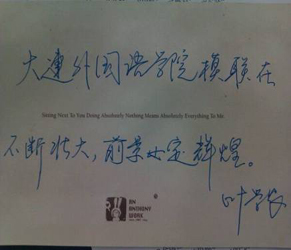 大連外国语学院模联在
Sitting Next To You Doing Absolutely Nothing Means Absolutely Everything To Me
不断壮大，前景必定辉煌。
AN
ANTHONY
WORK